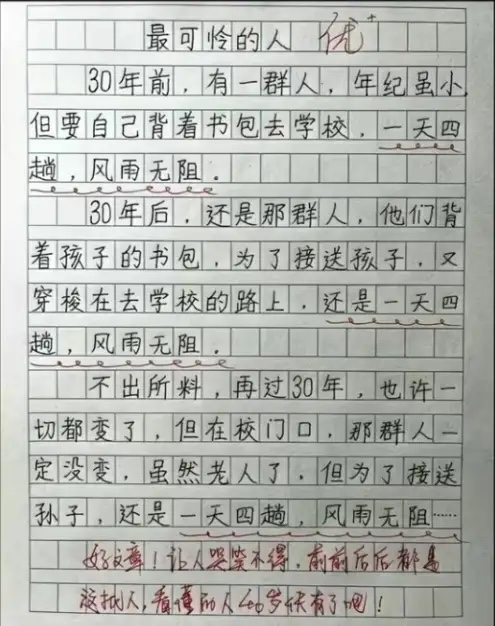 最可怜的人 优+
30年前，有一群人，年纪虽小
但要自己背着书包去学校，一天四
趟，风雨无阻．
30年后，还是那群人，他们背
着孩子的书包，为了接送孩子，又
穿梭在去学校的路上．还是一天四
趟，风雨无阻．
不出所料，再过30年，也许一
切都变了，但在校门口，那群人一
定没变，虽然老人了，但为了接送
孙子，还是一天四趟，风雨无阻……
好文章！让人哭笑不得，前前后后都是
这批人，看懂的人40岁快有了吧！